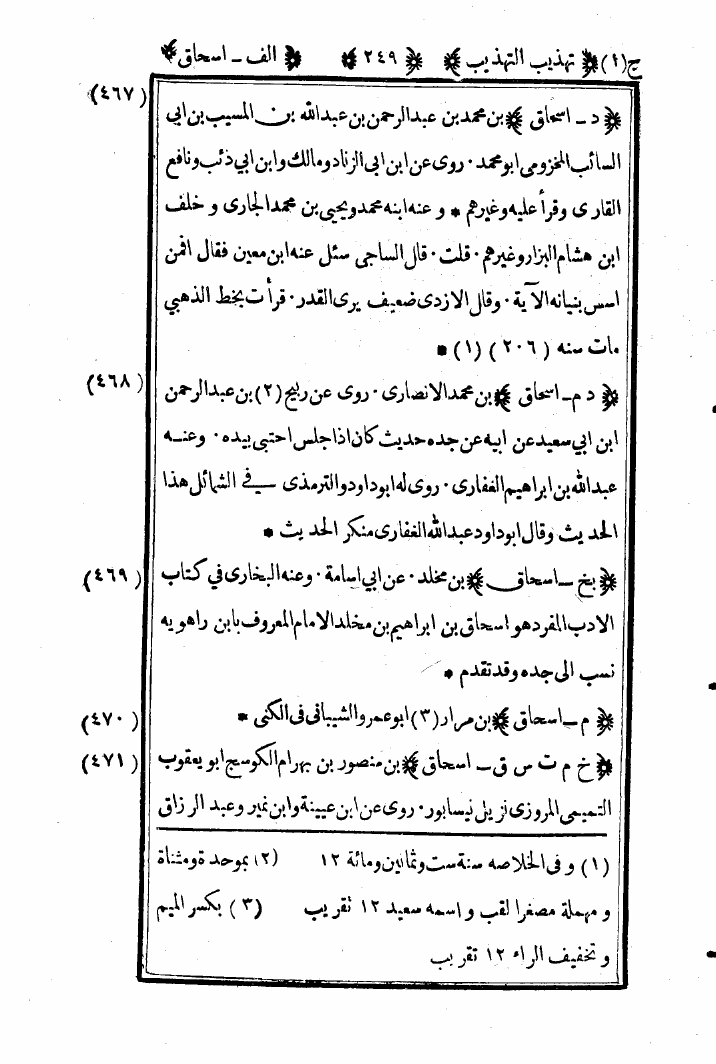 ج(١) ﴿ تهذيب التهذيب ﴾ ﴿ ٢٤٩ ﴾ ﴿ الف ـ اسحاق ﴾
﴿ د ـ اسحاق ﴾ بن محمد بن عبدالرحمن بن عبدالله بن المسيب بن ابى (٤٦٧)
السائب المخزومى ابو محمد ٠ روى عن ابن ابى الزناد ومالك وابن ابى ذئب ونافع
القارى وقرأ عليه وغيرهم * وعنه ابنه محمد ويحيى بن محمد الجارى و خلف
ابن هشام البزار وغيرهم ٠ قلت ٠ قال الساجى سئل عنه ابن معين فقال افمن
اسس بنيانه الآية ٠ وقال الازدى ضعيف يرى القدر ٠ قرأت بخط الذهبي
مات سنه ( ٢٠٦ ) (١) *
﴿ د م ـ اسحاق ﴾ بن محمد الانصارى ٠ روى عن ربيح (٢) بن عبدالرحمن (٤٦٨)
ابن ابي سعيد عن ابيه عن جده حديث كان اذا جلس احتبى بيده ٠ وعنه
عبدالله بن ابراهيم الغفارى ٠ روى له ابو داود والترمذى في الشمائل هذا
الحديث وقال ابو داود عبدالله الغفارى منكر الحديث *
﴿ بخ ـ اسحاق ﴾ بن مخلد ٠ عن ابي اسامة ٠ وعنه البخارى في كتاب (٤٦٩)
الادب المفرد هو اسحاق بن ابراهيم بن مخلد الامام المعروف بابن راهويه
نسب الى جده وقد تقدم *
﴿ م ـ اسحاق ﴾ بن مرار (٣) ابو عمرو الشيبانى فى الكنى * (٤٧٠)
﴿ خ م ت س ق ـ اسحاق ﴾ بن منصور بن بهرام الكوسج ابو يعقوب (٤٧١)
التميمى المروزى نزيل نيسابور ٠ روى عن ابن عيينة وابن نمير وعبد الرزاق
(١) و فى الخلاصه سنة ست وثمانين ومائة ١٢ (٢) بموحدة ومثناة
و مهملة مصغرا لقب و اسمه سعيد ١٢ تقريب (٣) بكسر الميم
و تخفيف الراء ١٢ تقريب